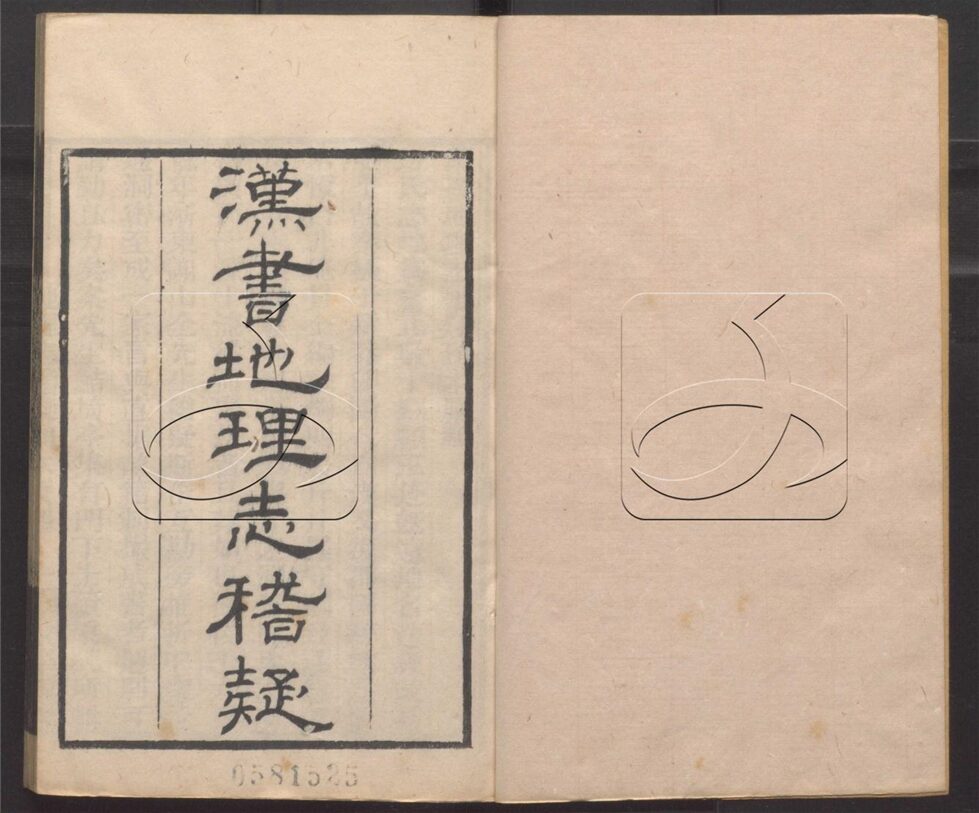 漢書地理志稽疑
0581525